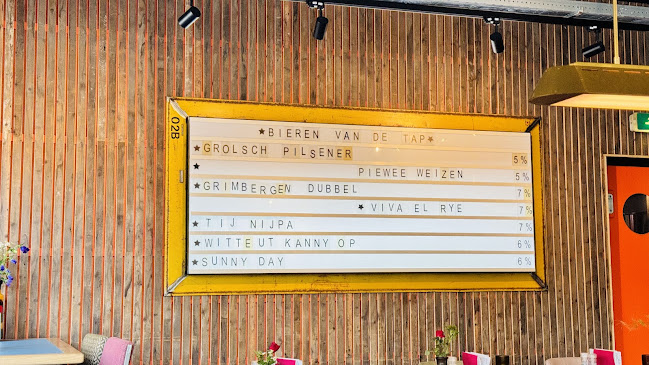 02B
★BIEREN VAN DE TAP★
★GROLSCH PILSENER 5%
★ PIEWEE WEIZEN 5%
★GRIMBERGEN DUBBEL 7%
★VIVA EL RYE 7%
★TIJ NIJPA 7%
★WITTEUT KANNY OP 6%
★SUNNY DAY 6%